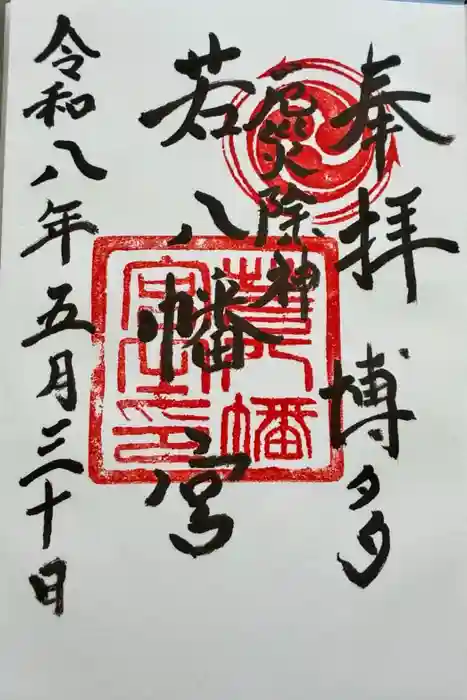 奉拝 博多
厄災除神
若八幡宮
令和八年五月三十日
若八幡
宮之印